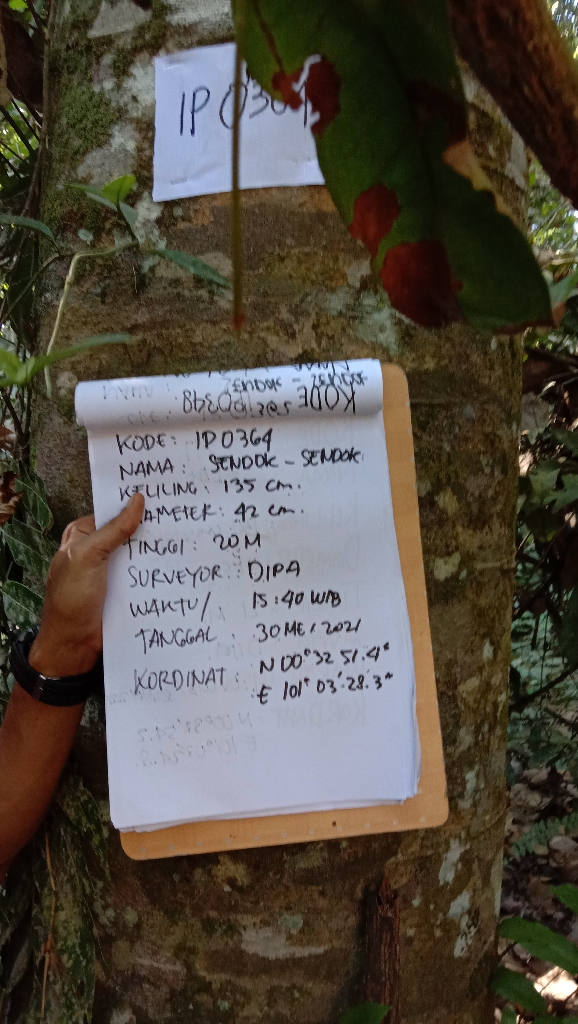 IP 0364
KODE : IP 0364
NAMA : SENDOK - SENDOK
KELILING : 135 cm.
DIAMETER : 42 cm.
TINGGI : 20 M
SURVEYOR : DIPA
WAKTU / 15:40 WIB
TANGGAL : 30 MEI 2021
KORDINAT : N 00° 32' 51.4"
E 101° 03' 28.3"